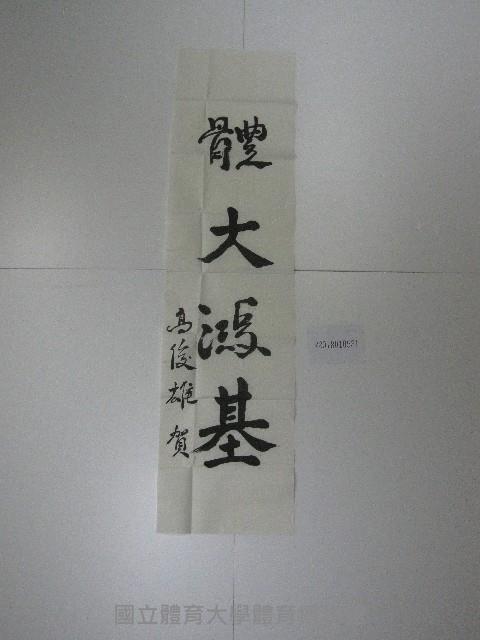 體大鴻基
高俊雄賀
國立體育大學體育